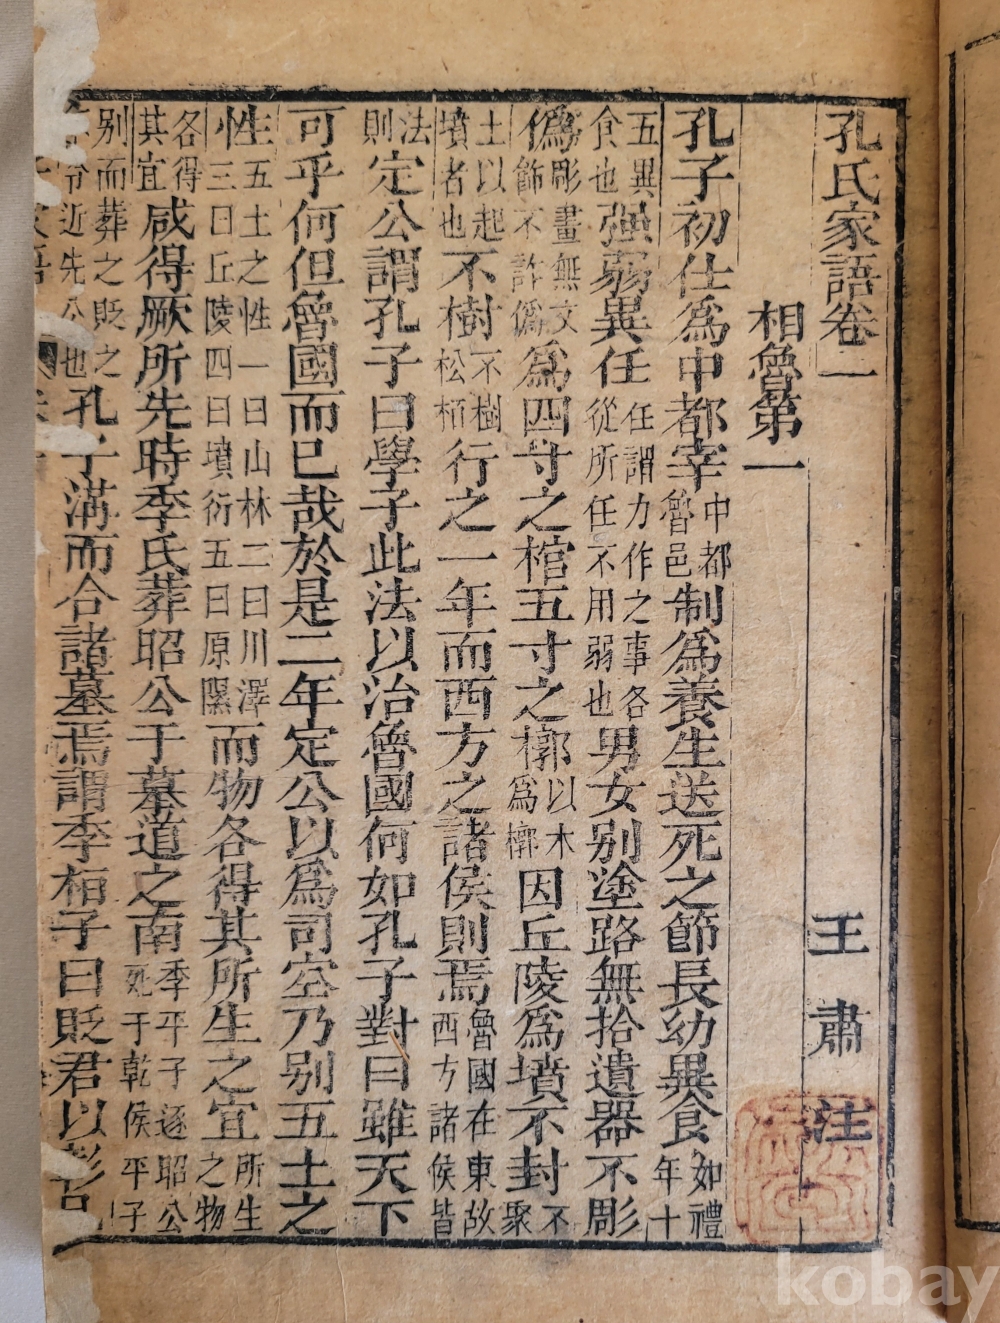 孔氏家語卷一
王肅注
相魯第一
孔子初仕爲中都宰中都魯邑制爲養生送死之節長幼異食如禮年十
五異食也强弱異任任謂力作之事各從所任不用弱也男女别塗路無拾遺器不彫
僞彫畫無文飾不詐僞爲四寸之棺五寸之椁以木爲椁因丘陵爲墳不封不聚
土以起墳者也不樹不樹松栢行之一年而西方之諸侯則焉魯國在東故西方諸侯皆
法則定公謂孔子曰學子此法以治魯國何如孔子對曰雖天下
可乎何但魯國而已哉於是二年定公以爲司空乃别五土之
性五土之性一曰山林二曰川澤三曰丘陵四曰墳衍五曰原隰而物各得其所生之宜所生之物
各得其宜咸得厥所先時季氏葬昭公于墓道之南季平子逐昭公死于乾侯平子
别而葬之貶之不令近先公也孔子溝而合諸墓焉謂季桓子曰貶君以彰己
kobay